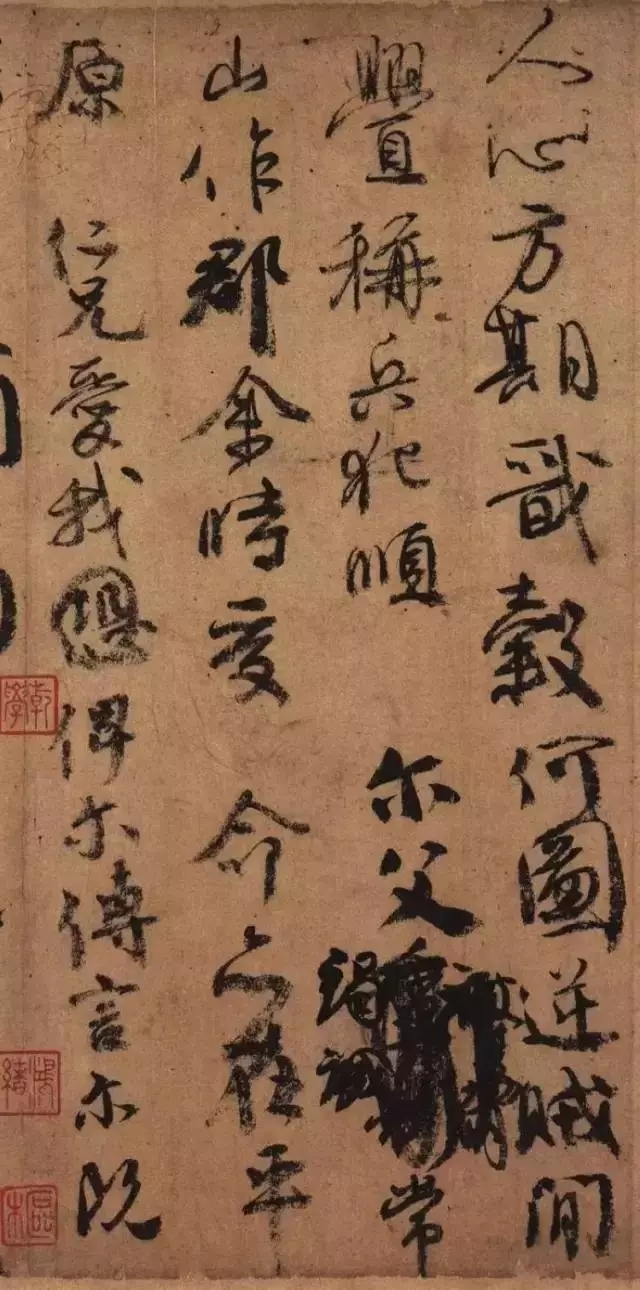 人心方期戩穀何圖逆賊間
釁稱兵犯順 尔父竭誠常
山作郡余時受 命亦在平
原 仁兄愛我俾尔傳言尔既